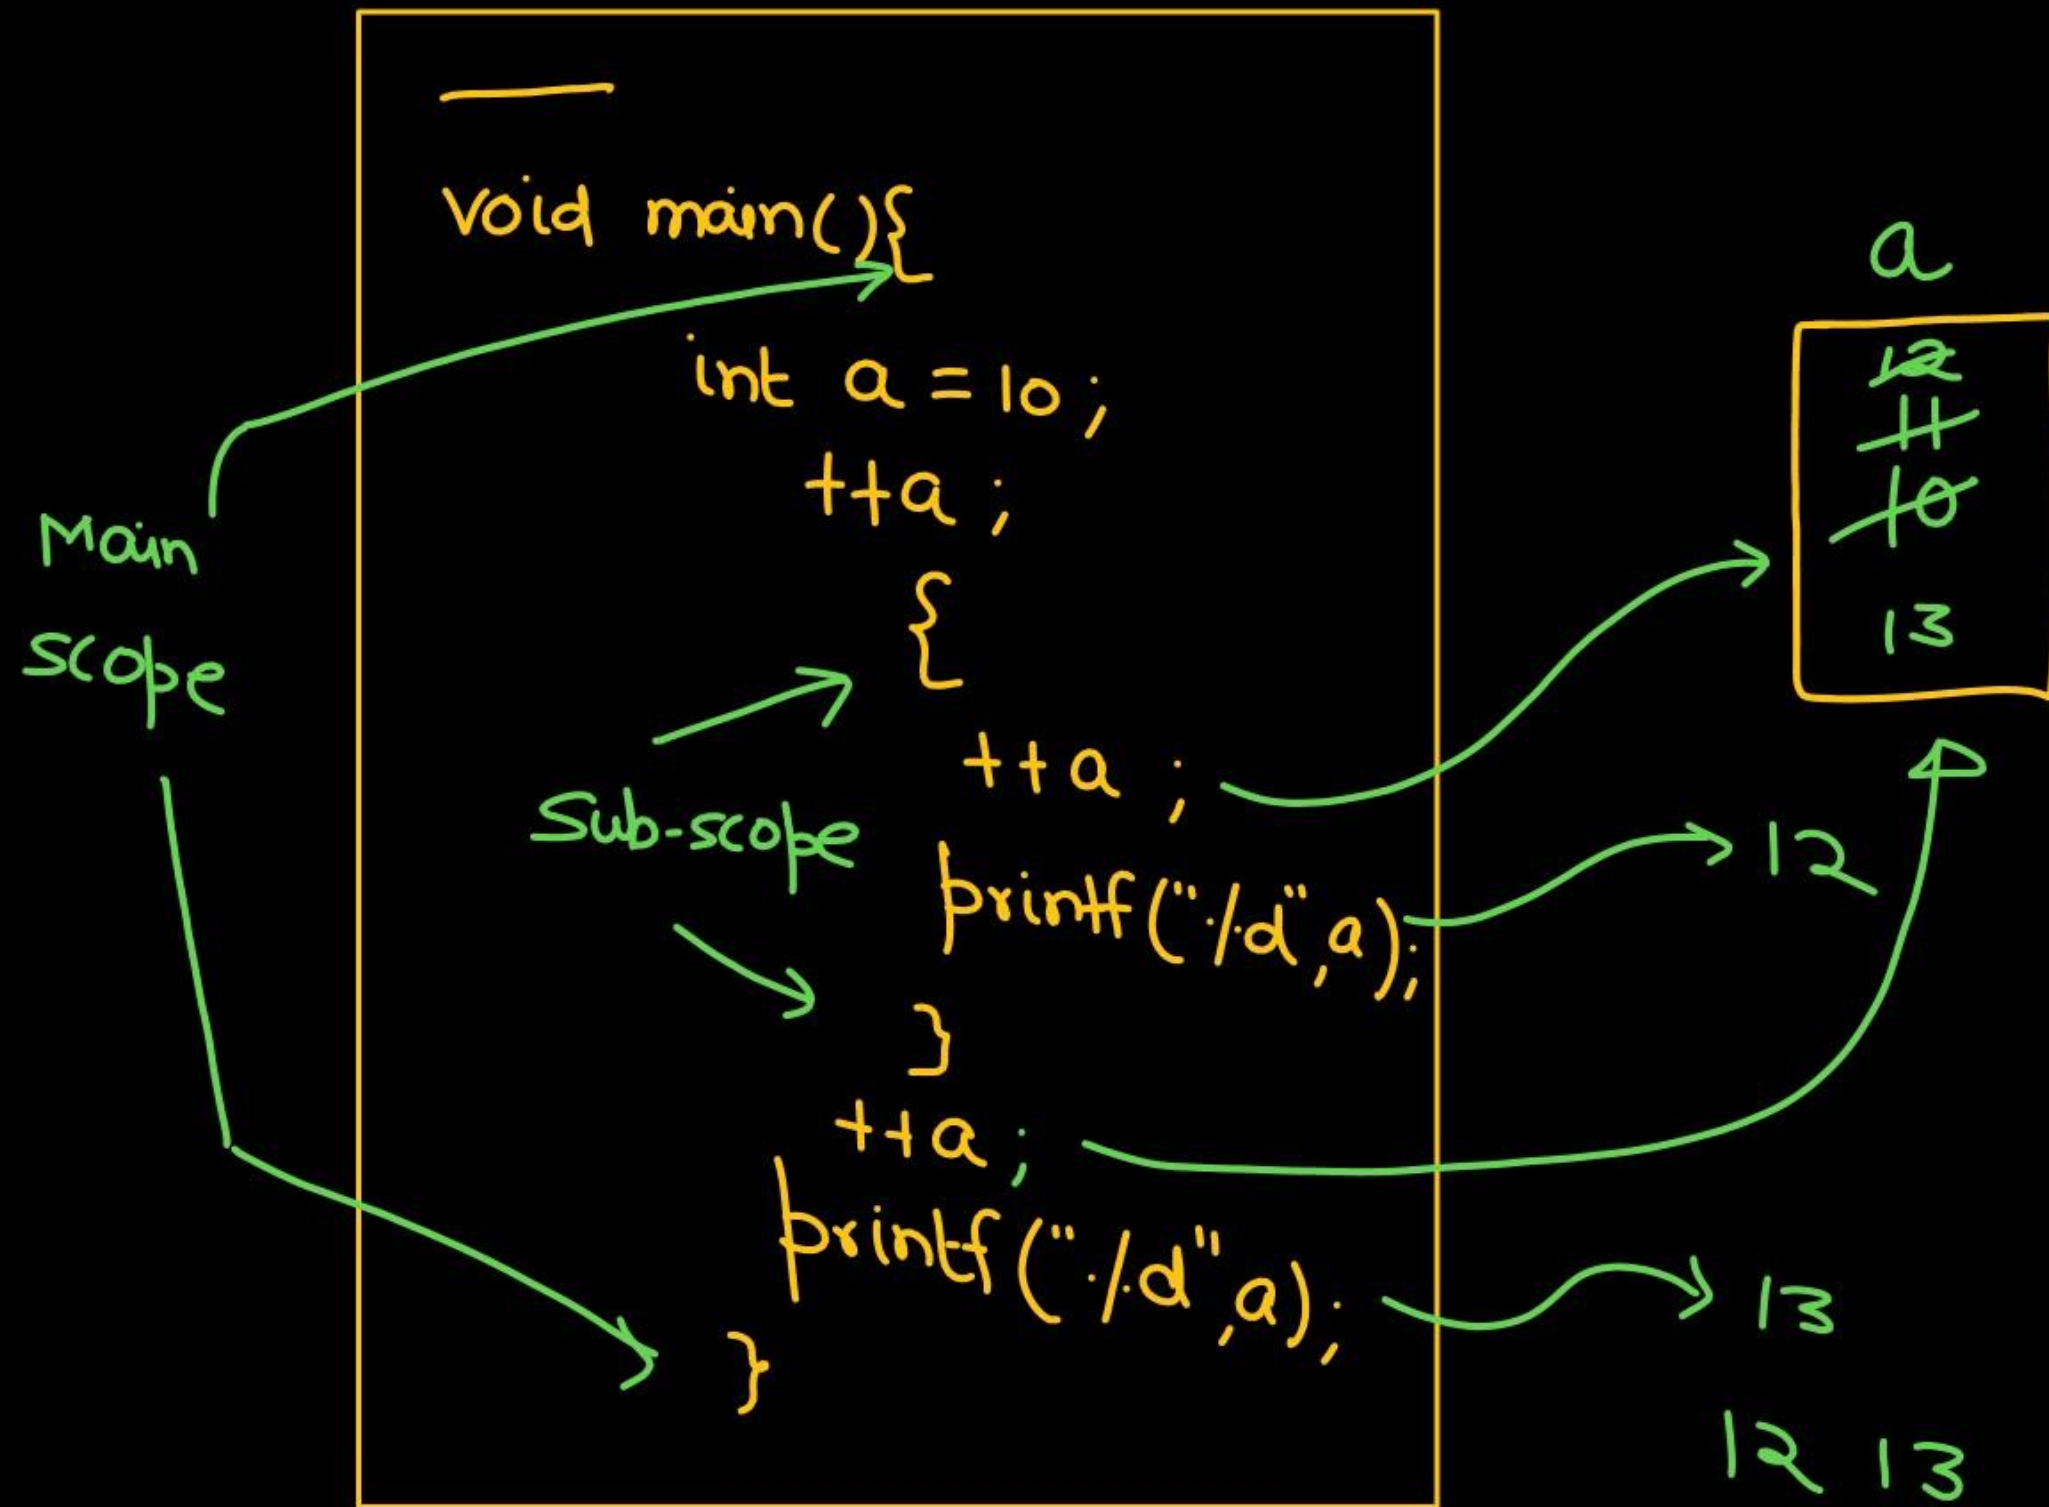 void main(){
int a = 10 ;
++a ;
{
++a ;
printf("%d",a);
}
++a ;
printf("%d",a);
}
Main
scope
Sub-scope
a
12
11
10
13
12
13
12 13